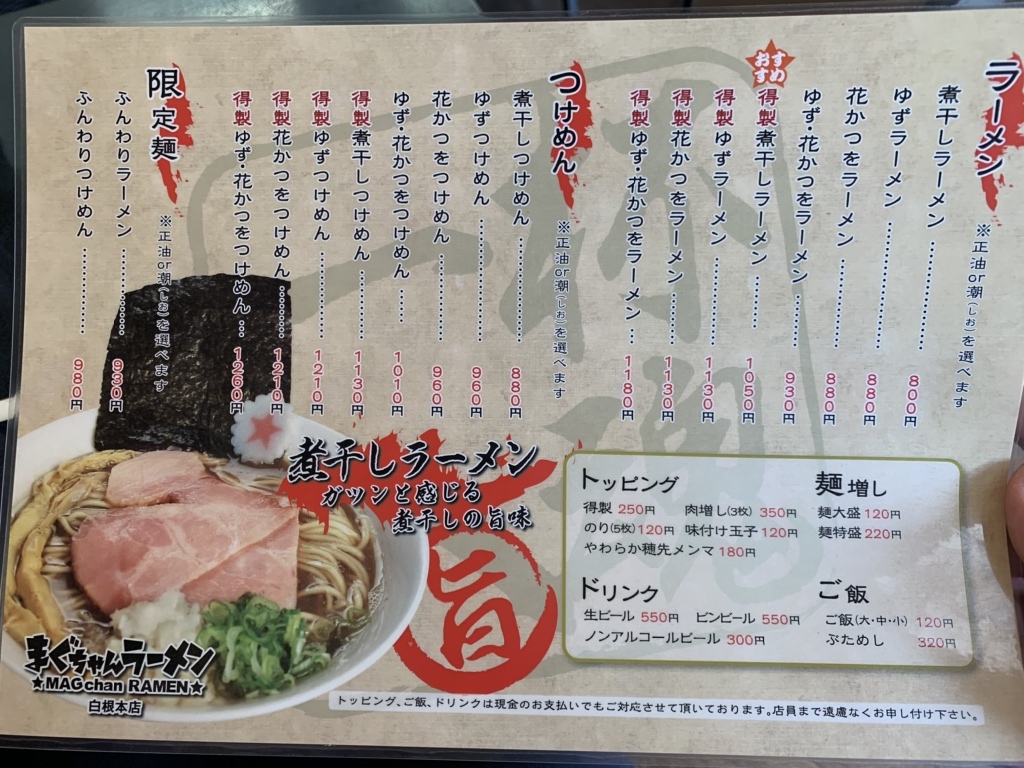 ラーメン
※正油or潮(しお)を選べます
煮干しラーメン………………800円
ゆずラーメン………………880円
花かつをラーメン……………880円
ゆず・花かつをラーメン………930円
おすすめ
得製煮干しラーメン…………1050円
得製ゆずラーメン……………1130円
得製花かつをラーメン………1130円
得製ゆず・花かつをラーメン…1180円
つけめん
※正油or潮(しお)を選べます
煮干しつけめん………………880円
ゆずつけめん………………960円
花かつをつけめん……………960円
ゆず・花かつをつけめん……1010円
得製煮干しつけめん…………1130円
得製ゆずつけめん……………1210円
得製花かつをつけめん………1210円
得製ゆず・花かつをつけめん…1260円
限定麺
※正油or潮(しお)を選べます
ふんわりラーメン……………930円
ふんわりつけめん……………980円
煮干しラーメン
ガツンと感じる
煮干しの旨味
旨
トッピング
得製 250円 肉増し(3枚) 350円
のり(5枚) 120円 味付け玉子 120円
やわらか穂先メンマ 180円
麺増し
麺大盛 120円
麺特盛 220円
ドリンク
生ビール 550円 ビンビール 550円
ノンアルコールビール 300円
ご飯
ご飯(大・中・小) 120円
ぶためし 320円
まぐちゃんラーメン
★MAGchan RAMEN★
白根本店
トッピング、ご飯、ドリンクは現金のお支払いでもご対応させて頂いております。店員まで遠慮なくお申し付け下さい。